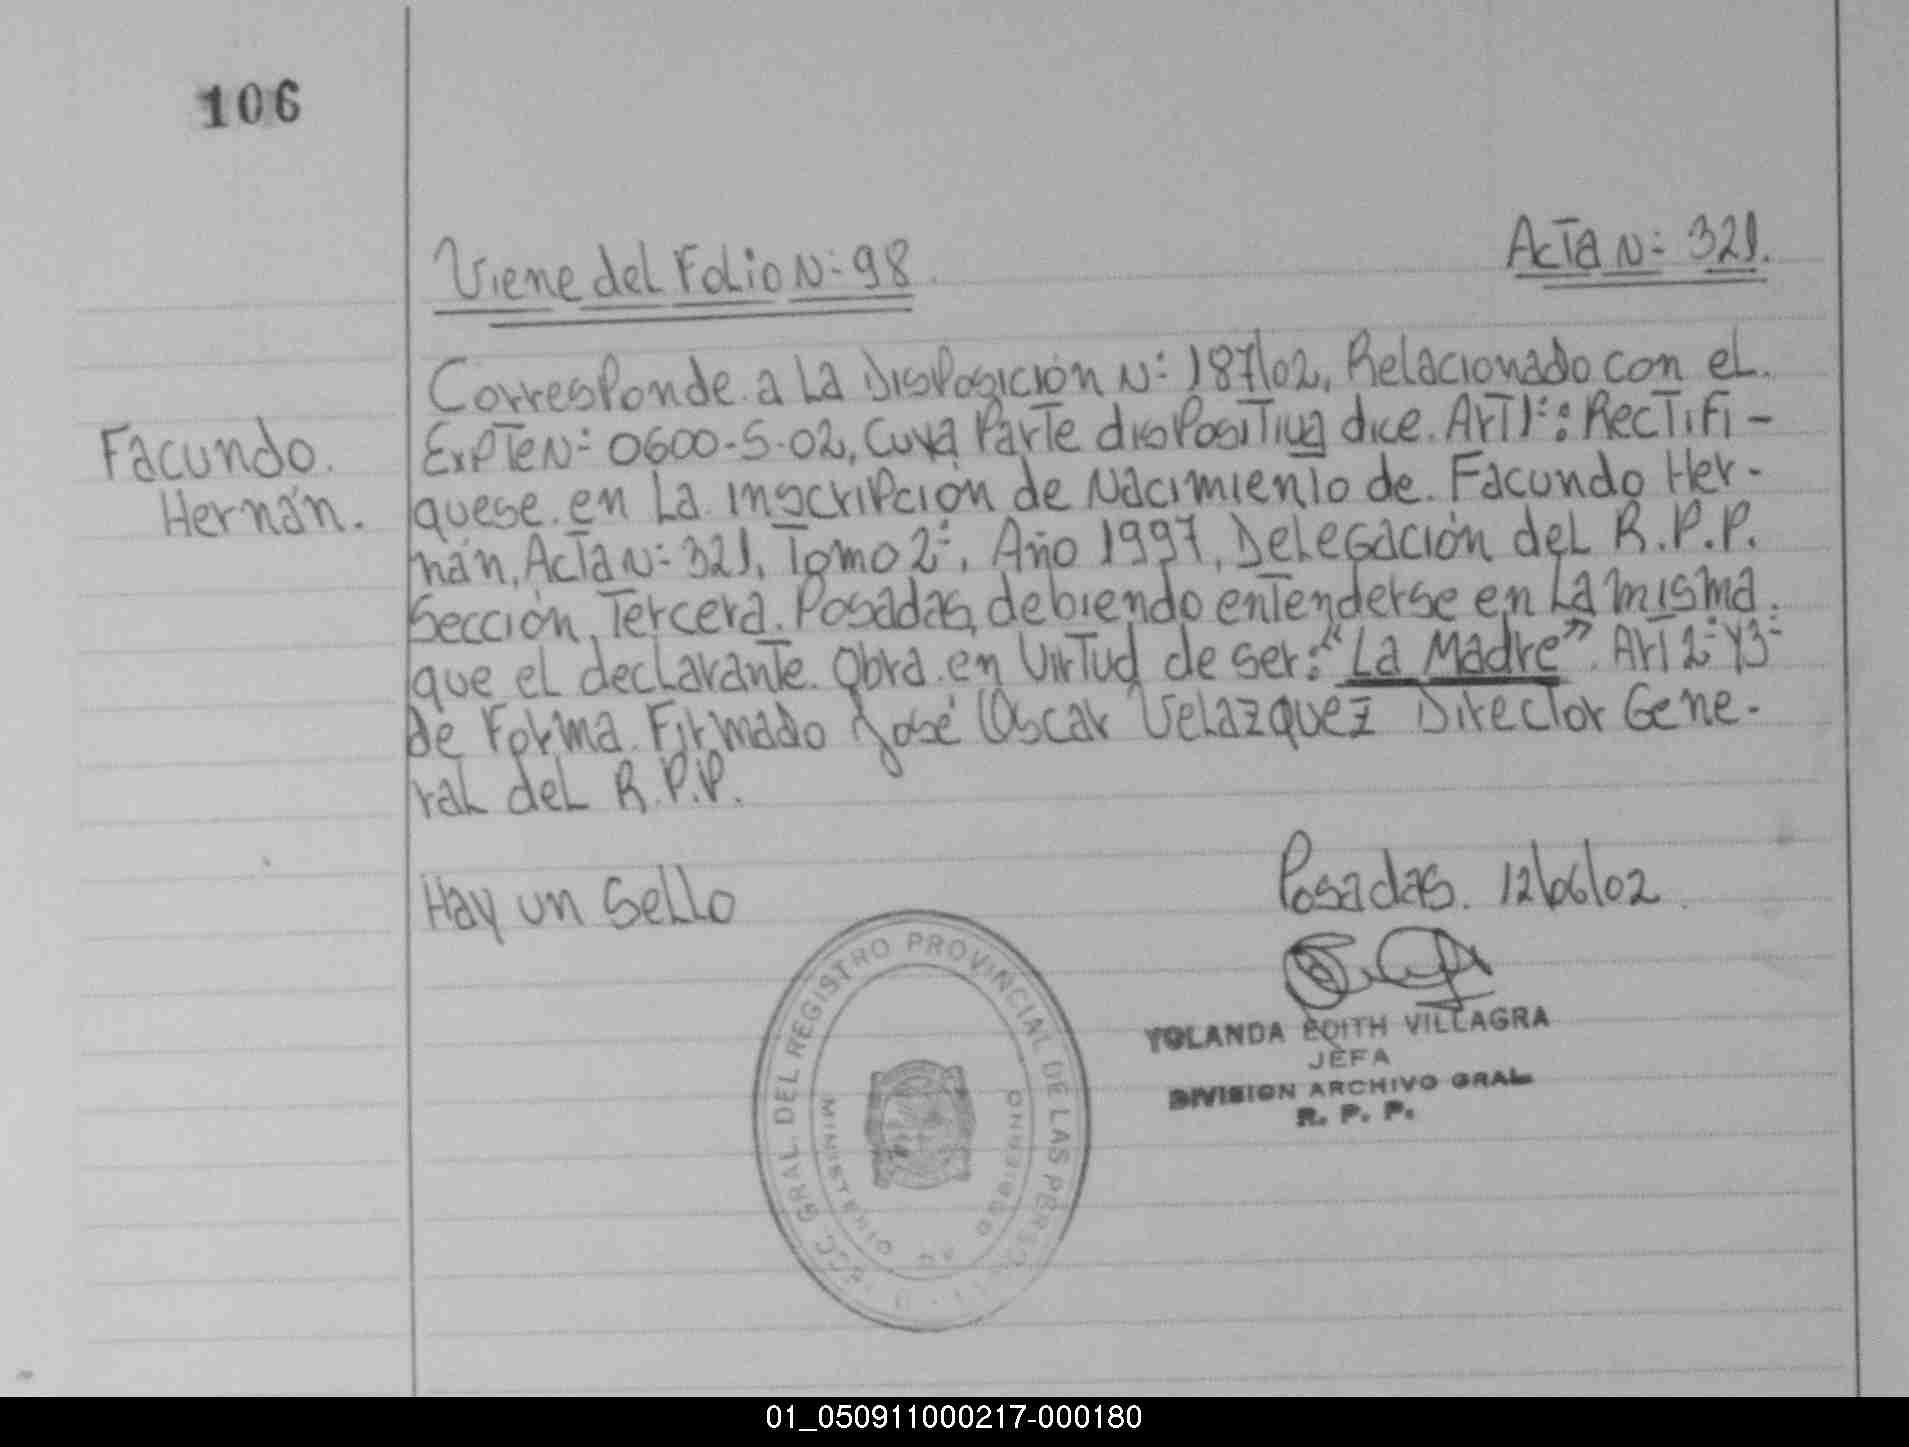 106
Viene del Folio N: 98.
Acta N: 321.
Facundo.
Hernán.
Corresponde a La Disposición N: 187/02, Relacionado con el.
ExpTe N: 0600-S-02, Cuya Parte dispositiva dice. Art 1:: Rectifi-
quese. en La inscripción de Nacimiento de. Facundo Her-
nán, Acta N: 321, Tomo 2:, Año 1997, Delegación del R.P.P.
Sección Tercera. Posadas, debiendo entenderse en La misma.
que el declarante. Obra. en Virtud de ser: "La Madre". Art 2: y 3:
de Forma. Firmado José Oscar Velazquez Director Gene-
ral del R.P.P.
Hay un Sello
Posadas. 12/06/02.
YOLANDA EDITH VILLAGRA
JEFA
DIVISION ARCHIVO GRAL
R. P. P.
GRAL. DEL REGISTRO PROVINCIAL DE LAS
MINISTERIO DE GOBIERNO
01_050911000217-000180